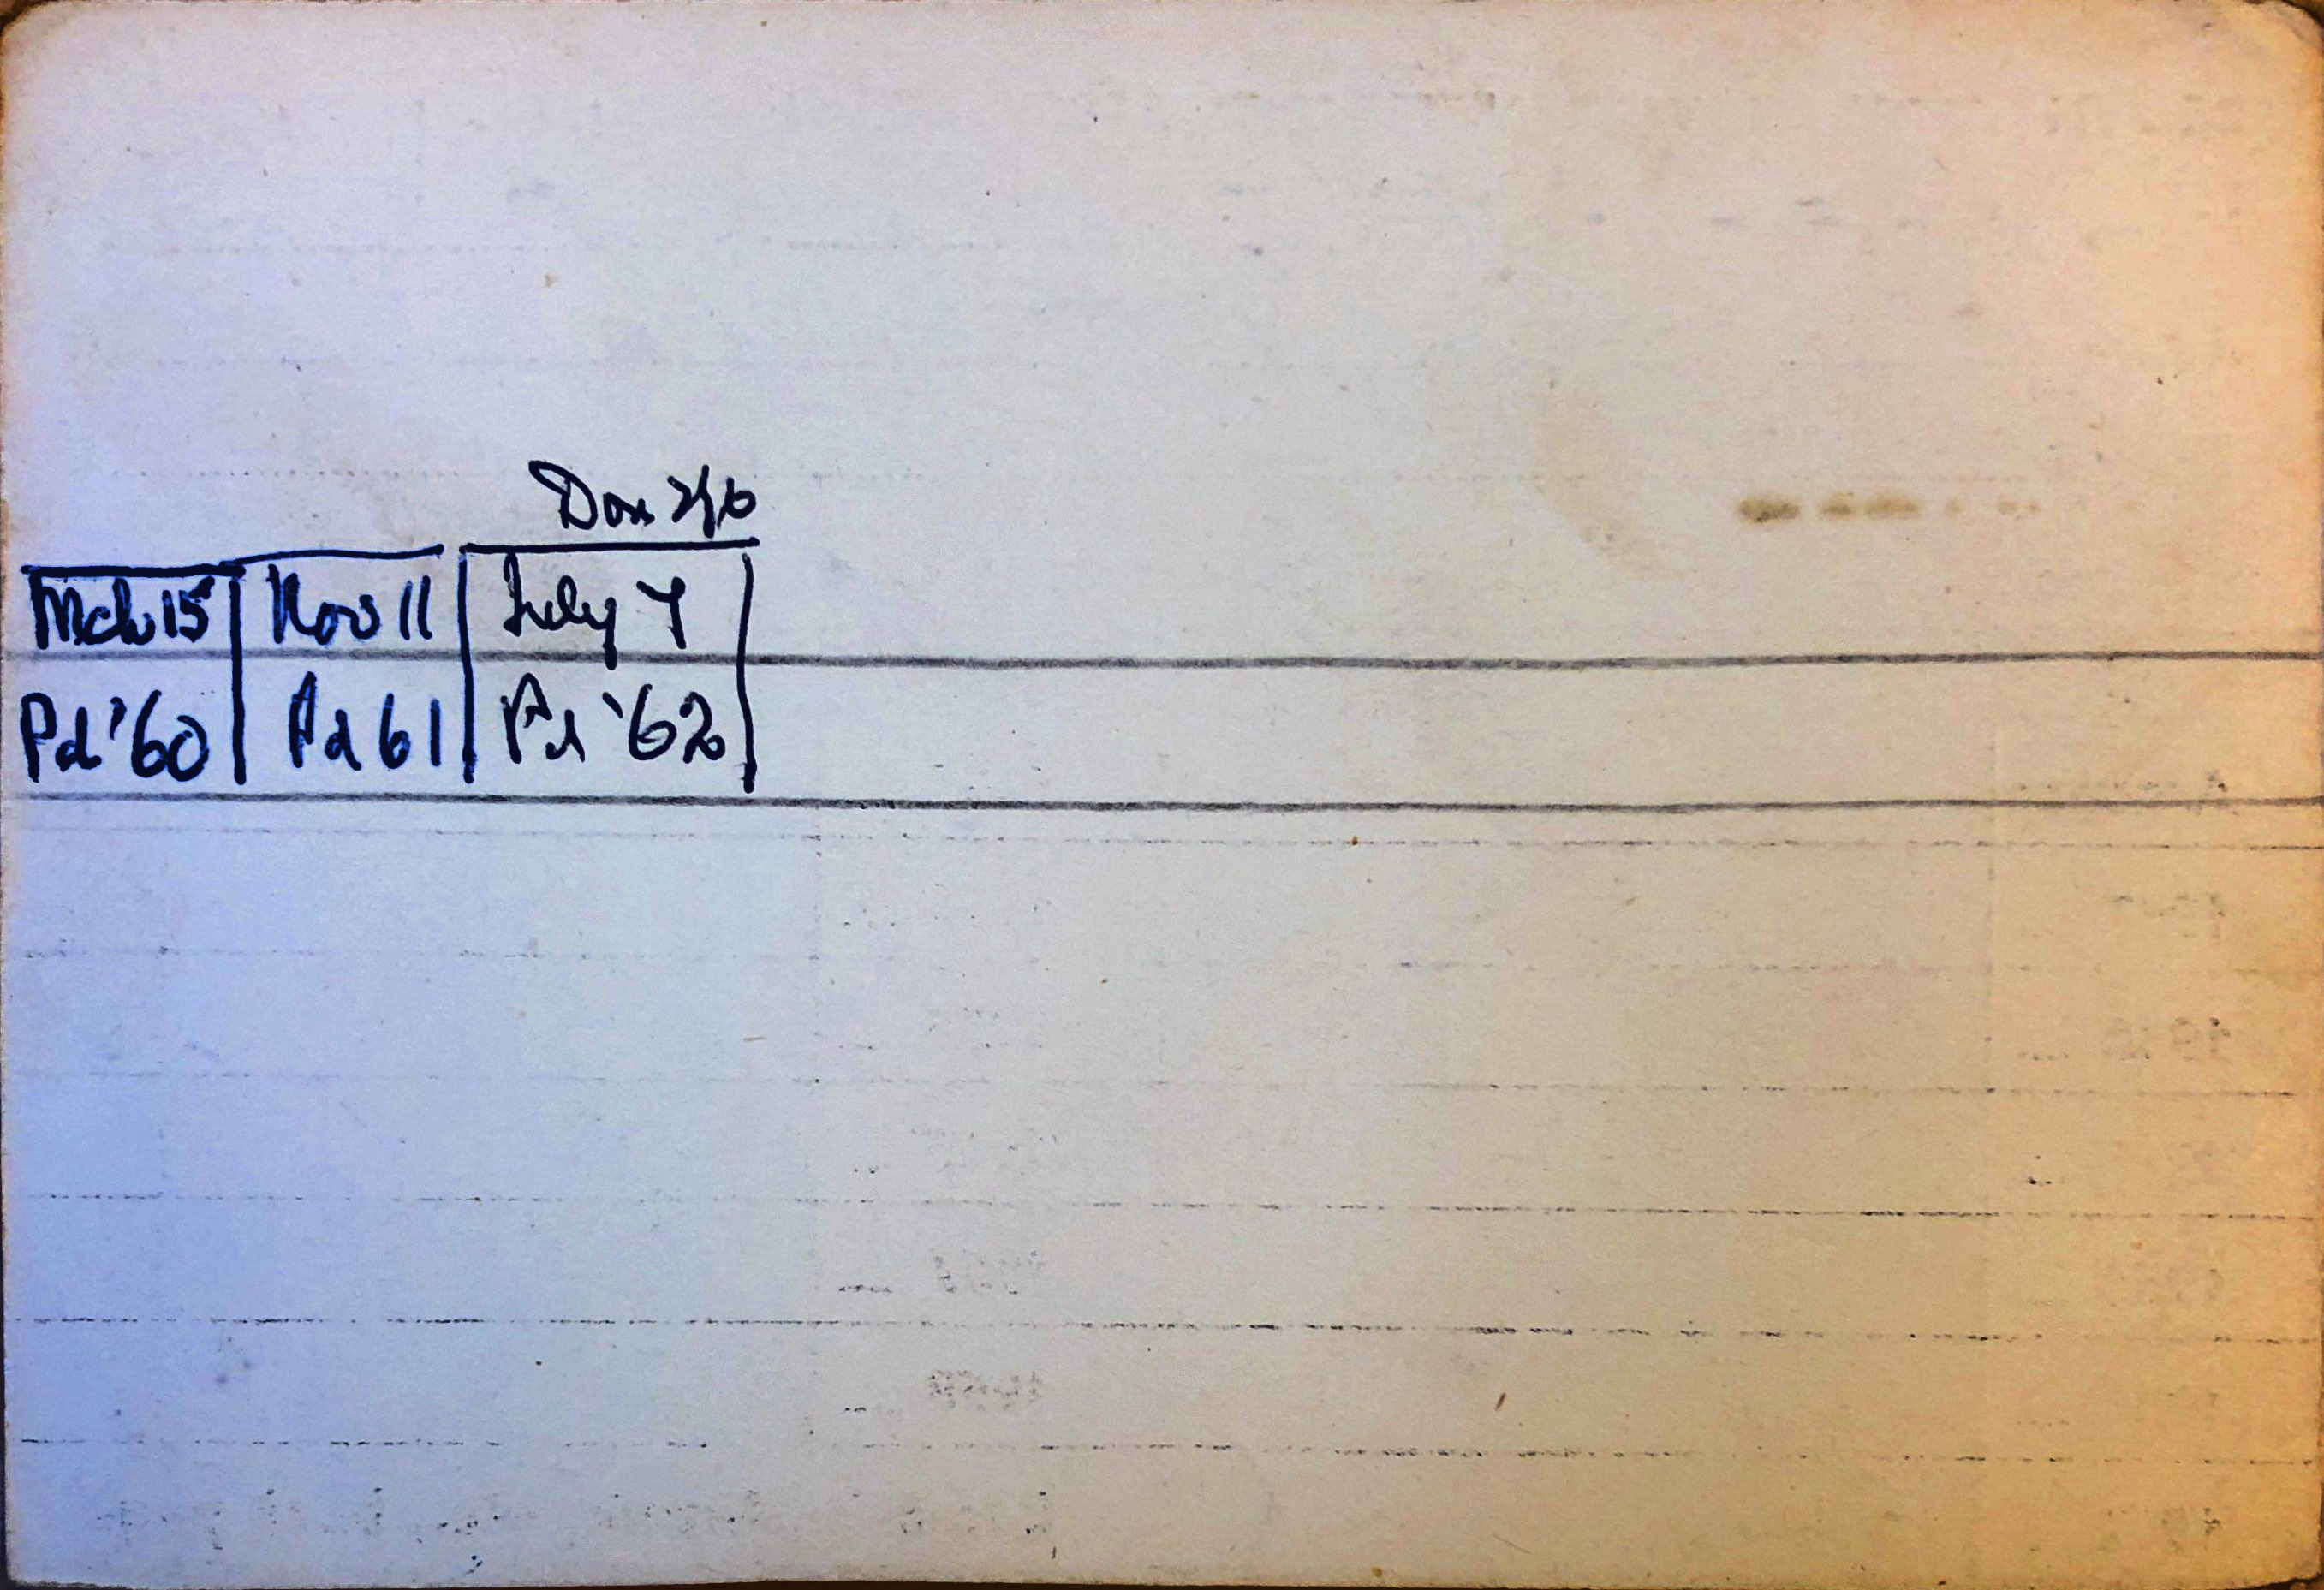 Don 2/6
Mch 15 Nov 11 July 7
Pd '60 Pd 61 Pd '62